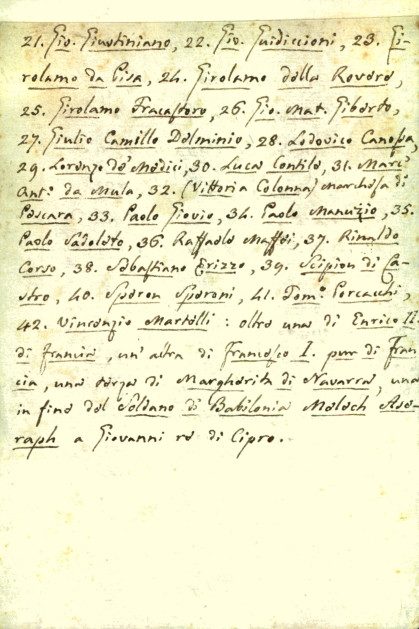 21. Gio. Giustiniano, 22. Gio. Guidiccioni, 23. Gi-
rolamo da Pisa, 24. Girolamo della Rovere,
25. Girolamo Fracastoro, 26. Gio. Mat. Giberto,
27. Giulio Camillo Delminio, 28. Lodovico Canossa,
29. Lorenzo de' Medici, 30. Luca Contile, 31. Marc'
Ant.º da Mula, 32. (Vittoria Colonna) Marchesa di
Pescara, 33. Paolo Giovio, 34. Paolo Manuzio, 35.
Paolo Sadoleto, 36. Raffaele Maffei, 37. Rinaldo
Corso, 38. Sebastiano Erizzo, 39. Scipion di Ca-
stro, 40. Speron Speroni, 41. Tom.º Porcacchi,
42. Vincenzio Martelli: oltre una di Enrico II.
di Francia, un' altra di Francesco I. pur di Fran-
cia, una terza di Margherita di Navarra, una
in fine del Soldano di Babilonia Meloch Ase-
raph a Giovanni re di Cipro.